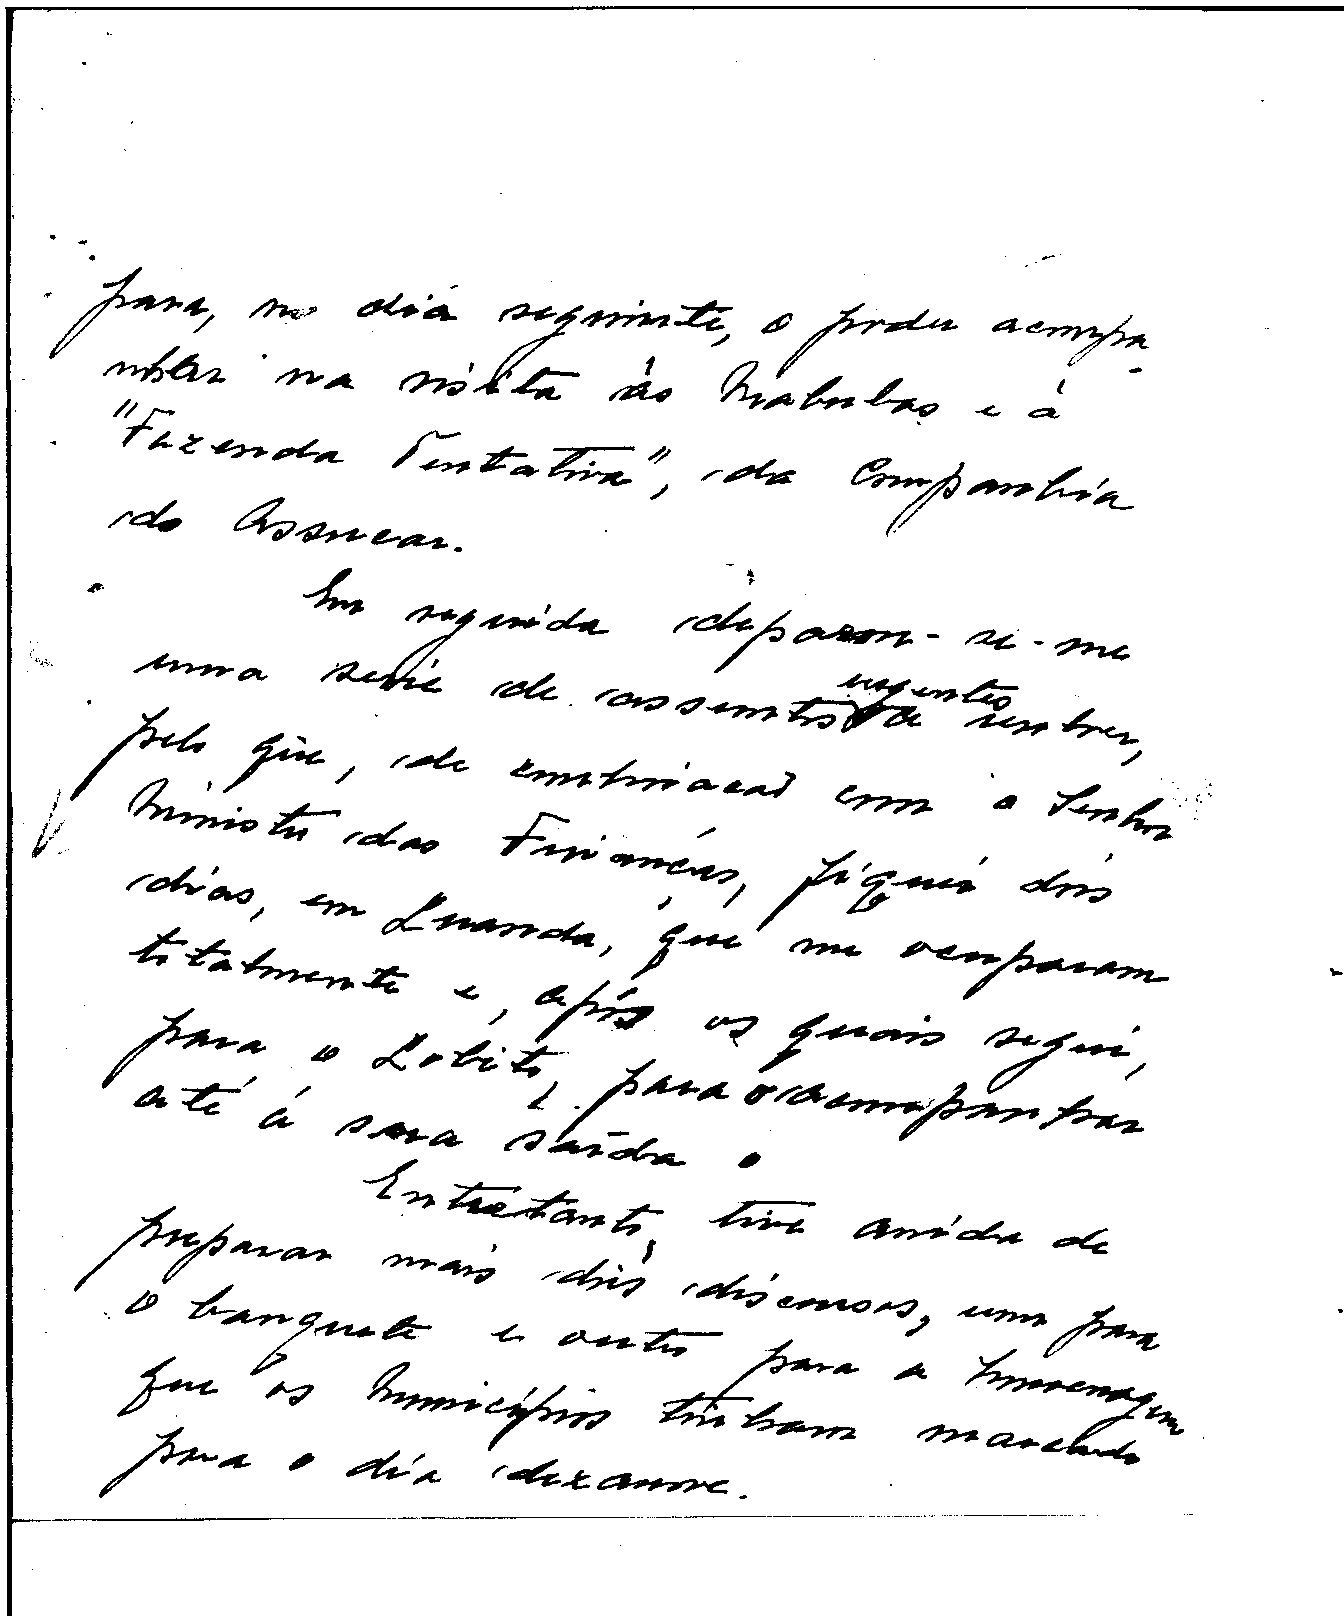 para, no dia seguinte, o poder acompa-
nhar na visita às Mabubas e à
"Fazenda Tentativa", da Companhia
do Assucar.
Em seguida deparou-se-me
uma serie de assuntos urgentes a resolver,
pelo que, de combinação com o Senhor
Ministro das Finanças, fiquei dois
dias, em Luanda, que me ocuparam
totalmente e, após os quais segui,
para o Lobito, para o acompanhar
até à sua saída.
Entretanto, tive ainda de
preparar mais dois discursos, um para
o banquete e outro para a homenagem
que os Municípios tinham marcado
para o dia dezanove.